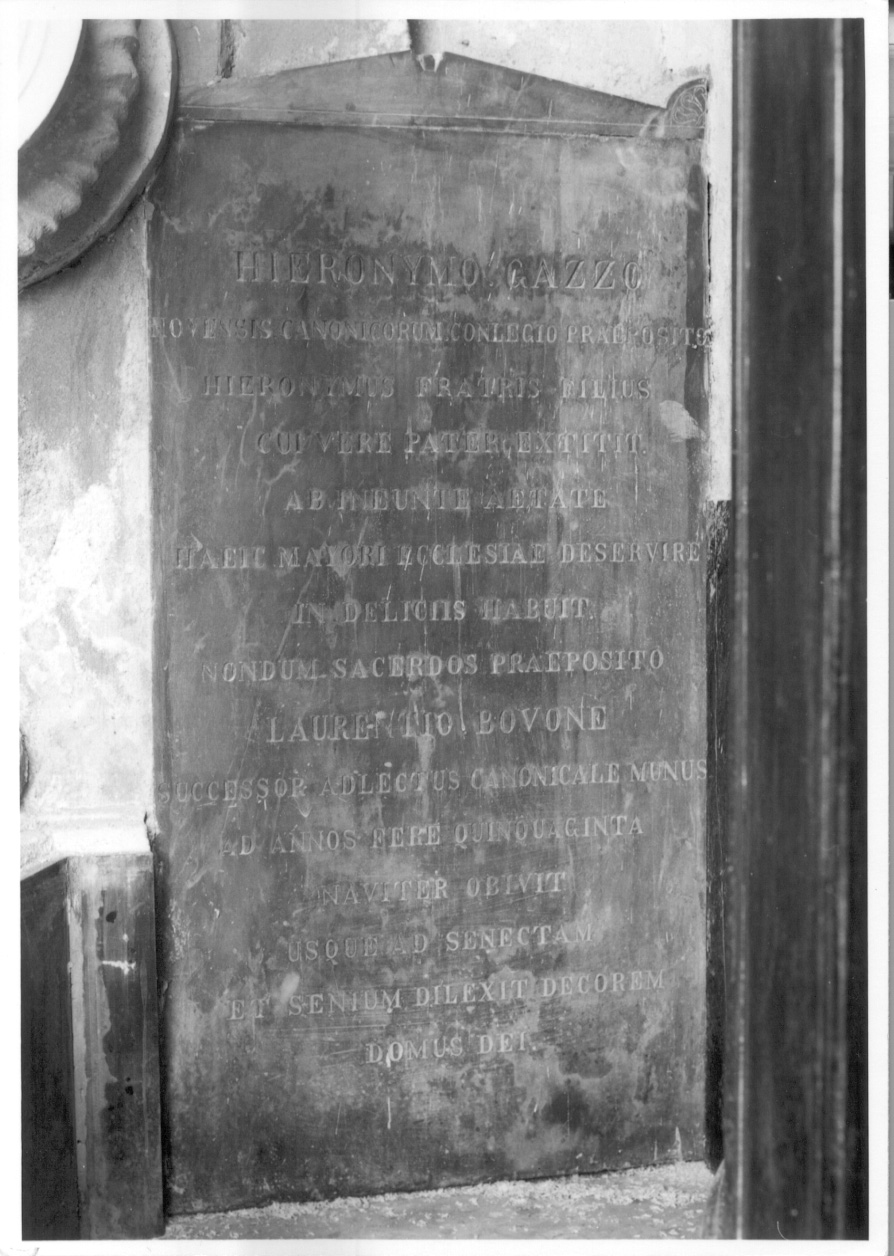 HIERONYMO GAZZO
NOVENSIS CANONICORUM CONLEGIO PRAEPOSITO
HIERONYMUS FRATRIS FILIUS
CUI VERE PATER EXTITIT.
AB INEUNTE AETATE
HAEIC MAYORI ECCLESIAE DESERVIRE
IN DELICIIS HABUIT.
NONDUM SACERDOS PRAEPOSITO
LAURENTIO BOVONE
SUCCESSOR ADLECTUS CANONICALE MUNUS
AD ANNOS FERE QUINQUAGINTA
NAVITER OBIVIT
USQUE AD SENECTAM
ET SENIUM DILEXIT DECOREM
DOMUS DEI.